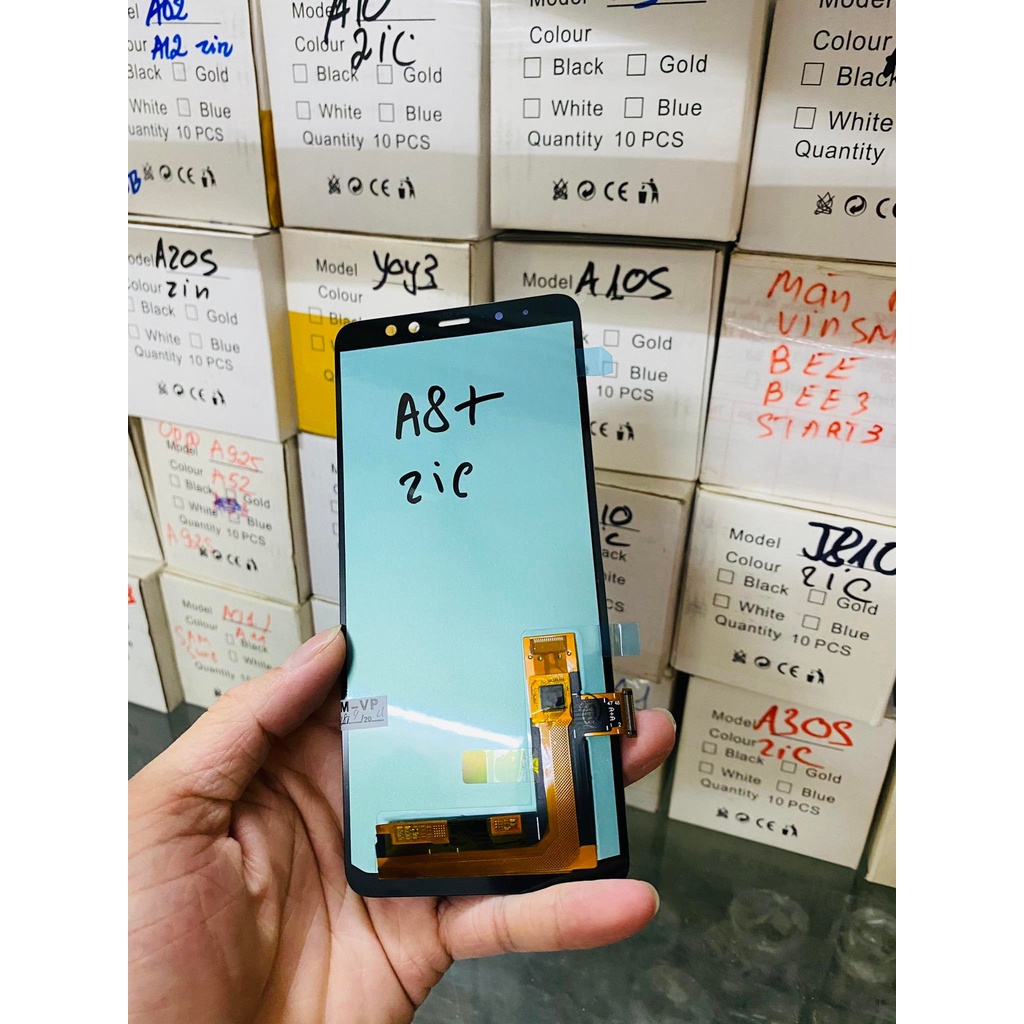 A02
A12 zin
Black Gold
White Blue
Quantity 10 PCS
CE
Model A10
Colour 2iC
Black Gold
White Blue
Quantity 10 PCS
CE
Colour
Black Gold
White Blue
Quantity 10 PCS
CE
Model
Colour
Black
White
Quantity
A20S
zin
Black Gold
White Blue
Quantity 10 PCS
CE
Model YOY3
Colour
Model A10S
Gold
Blue
CE
Màn
VINSM
BEE
BEE3
START3
A8+
2iC
OPP
Model A92S
Colour A52
Black Gold
White Blue
Quantity 10 PCS
A92S
CE
Model J810
Colour 2iC
Black Gold
White Blue
Quantity 10 PCS
CE
Model
Colour
Black
White
Quantity 10 PCS
M-VP
Model A30S
Colour 2iC
Black Gold
White Blue
Quantity 10 PCS
CE